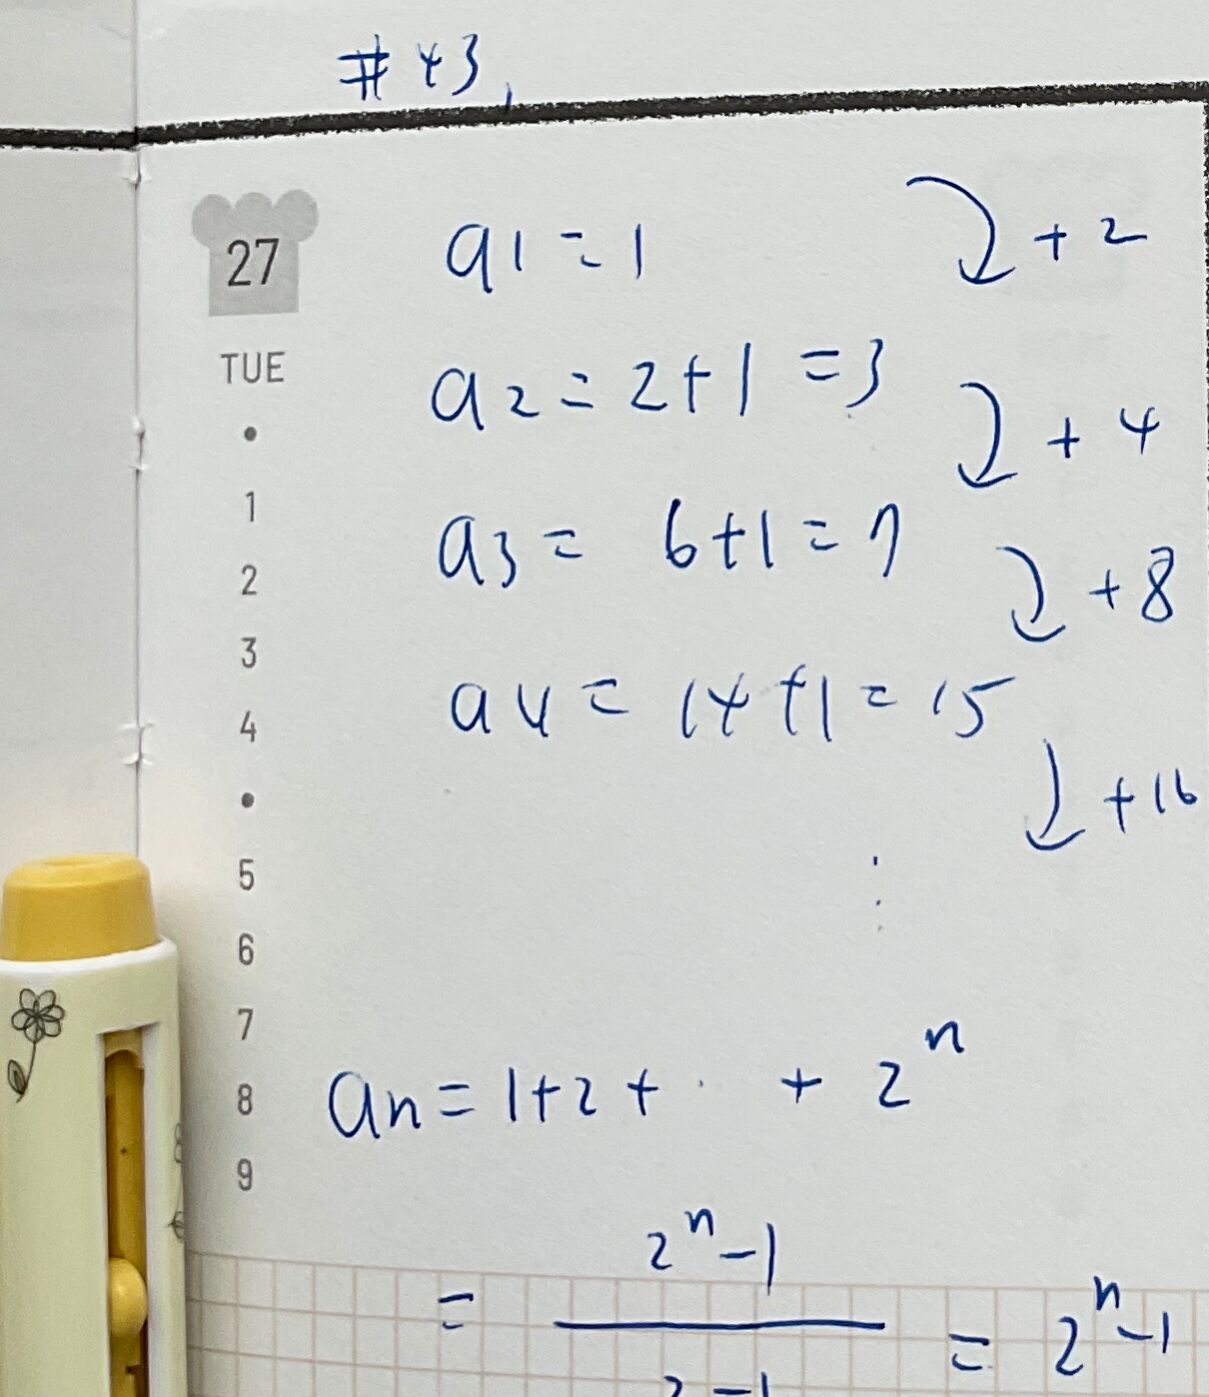 #43,
27
TUE
a1 = 1 +2
a2 = 2+1 = 3 +4
a3 = 6+1 = 7 +8
a4 = 14+1 = 15 +16
⋮
1
2
3
4
5
6
7
8
9
an = 1+2+ ·  + 2^n
= 2^n-1 / 2-1 = 2^n-1